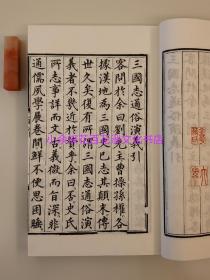 三國志通俗演義引
客問於余曰劉先主曹操孫權各
據漢地為三國史已志其顛末傳
世久矣復有所謂三國志通俗演
義者不幾近於贅乎余曰否史氏
所志事詳而文古義微而旨深非
通儒夙學展卷間鮮不便思困睡